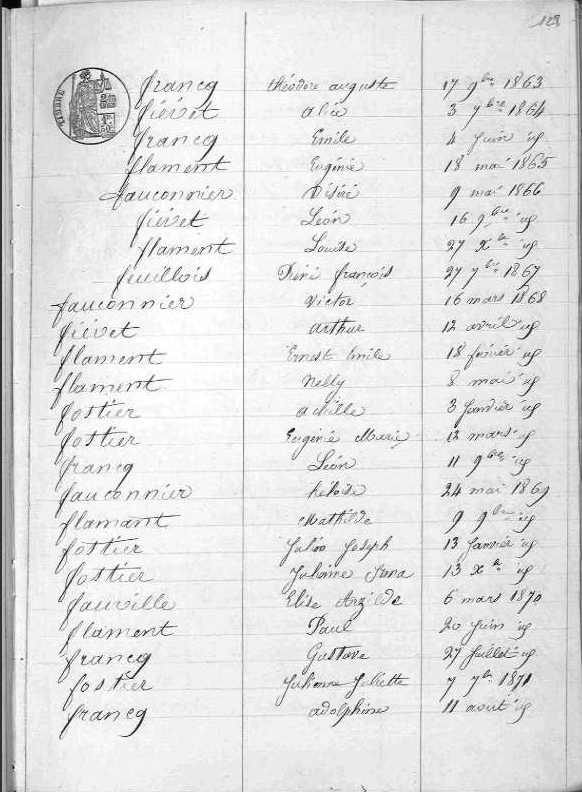 123
francq théodore auguste 17 9bre 1863
fiévet alix 3 7bre 1864
francq Emile 4 Juin id
flament Eugénie 18 mai 1865
fauconnier Désiré 9 mai 1866
fiévet Léon 16 9bre id
flament Louise 27 Xbre id
feuillois René françois 27 7bre 1867
fauconnier Victor 16 mars 1868
fiévet arthur 12 avril id
flament Ernest Emile 18 février id
flament Nelly 8 mai id
fostier achille 3 Janvier id
fostier Eugénie Marie 12 mars id
francq Léon 11 9bre id
fauconnier héloïse 24 mai 1869
flamant Mathilde 9 9bre id
fostier Joseph 13 Janvier id
fostier Julienne 13 Xbre id
fauville Elise 6 mars 1870
flament Paul 20 Juin id
francq Gustave 27 Juillet id
fostier Julienne Juliette 7 7bre 1871
francq adolphine 11 août id